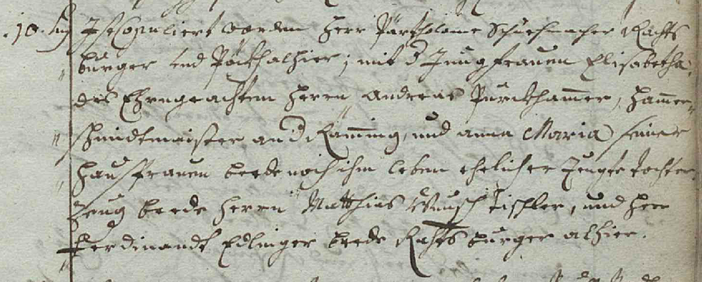 10. dig Ist Copuliert worden Herr Bärtholome Schuehmacher Raths
burger und Pöckh alhier, mit d Jungfrauen Elisabetha,
des Ehrngeachten Herrn Andreae Purckhammer, Hammer
schmidtmaister an d Raming, und Anna Maria seiner
Hausfrauen beede noch im leben ehelicher Zeugte tochter,
Zeug beede Herrn Matthias Tischler, und Herr
Ferdinandt Edlinger beede Raths burger alhier.